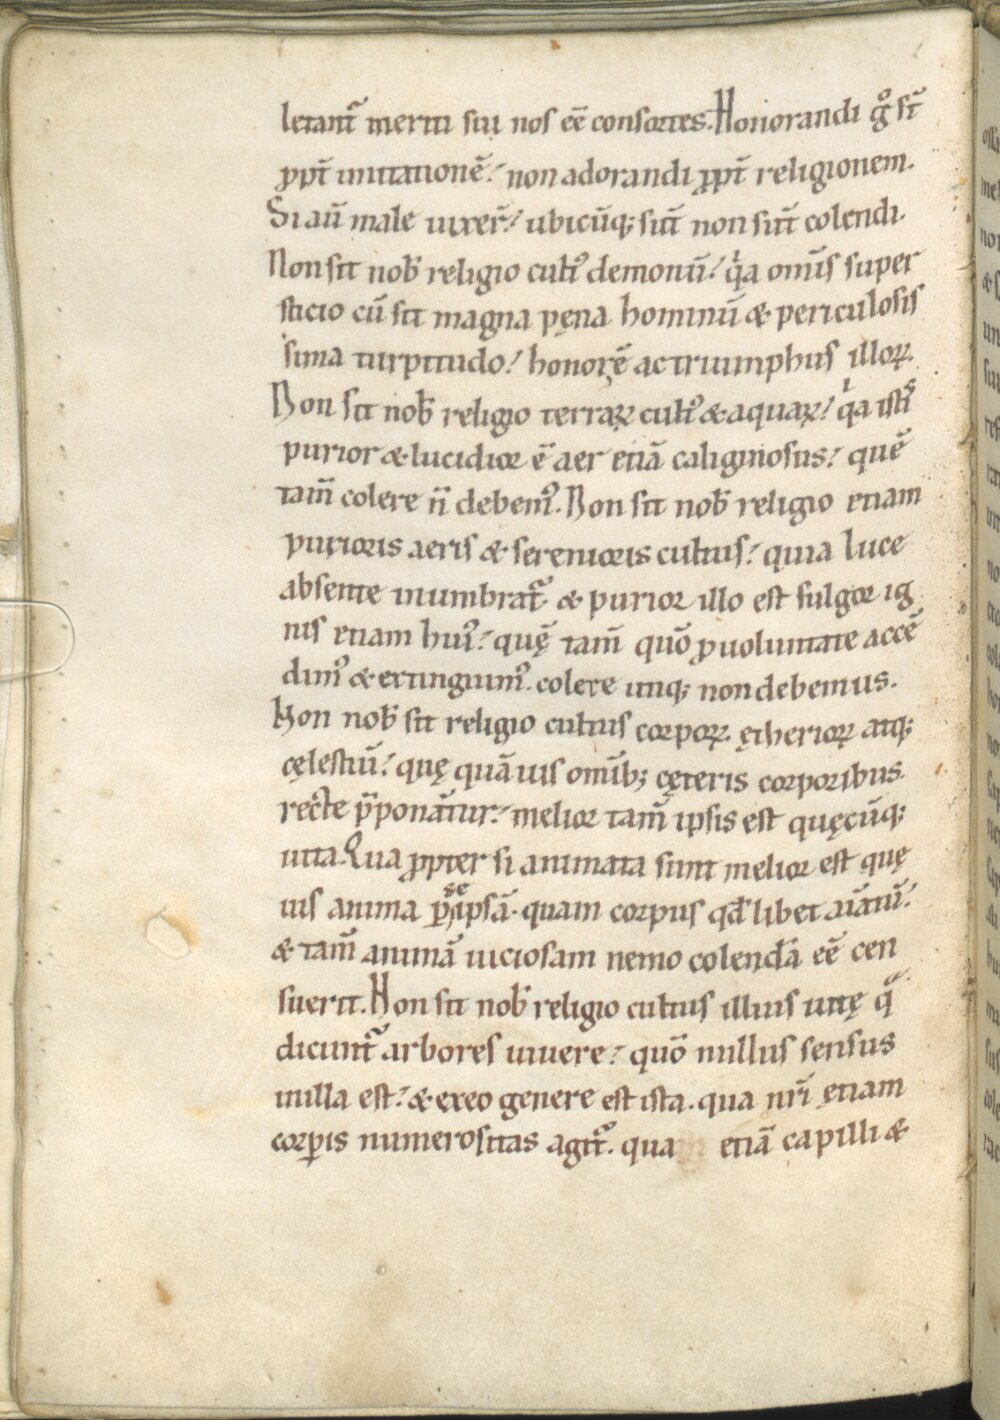 letant᷑ meriti sui nos eē consortes. Honorandi gͦ st̄
ꝓpt̄ imitationē. non adorandi ꝓpt̄ religionem.
Si aū male uixer̄. ubicūq; sūt non sūt colendi.
Non sit nob̄ religio cult᾽ demonū. qͥa omīs super
sticio cū sit magna pęna hominū & periculosis
sima turpitudo. honor ē ac triumphus illoꝝ.
Non sit nob̄ religio terraꝝ cult᾽ & aquaꝝ. qͥa istiˢ
purior & lucidior ē aer etiā caliginosus. quē
tam̄ colere n̄ debem᾽. Non sit nob̄ religio etiam
purioris aeris & serenioris cultus. quia luce
absente inumbrat᷑. & purior illo est fulgor ig
nis etiam hui᾽. quę̄ tam̄ quō ꝓ uoluntate accē
dim᾽ & extinguim᾽. colere utiq; non debemus.
Non nob̄ sit religio cultus corpoꝝ ętherioꝝ atq;
cęlestiū. quę quāuis omīb; cęteris corporibus
recte p̄ponantur. melior tam̄ ipsis est quęcūq;
uita. Qua ꝓpter si animata sunt melior est quę
uis anima ꝑ se ipsā. quam corpus qd̄ libet aīatū.
& tam̄ animā uiciosam nemo colendā eē cen
suerit. Non sit nob̄ religio cultus illius uitę qͣ
dicunt᷑ arbores uiuere. quō nullus sensus
in illa est. & ex eo genere est ista. qua nr̄i etiam
corꝑis numerositas agit᷑. qua etiā capilli &